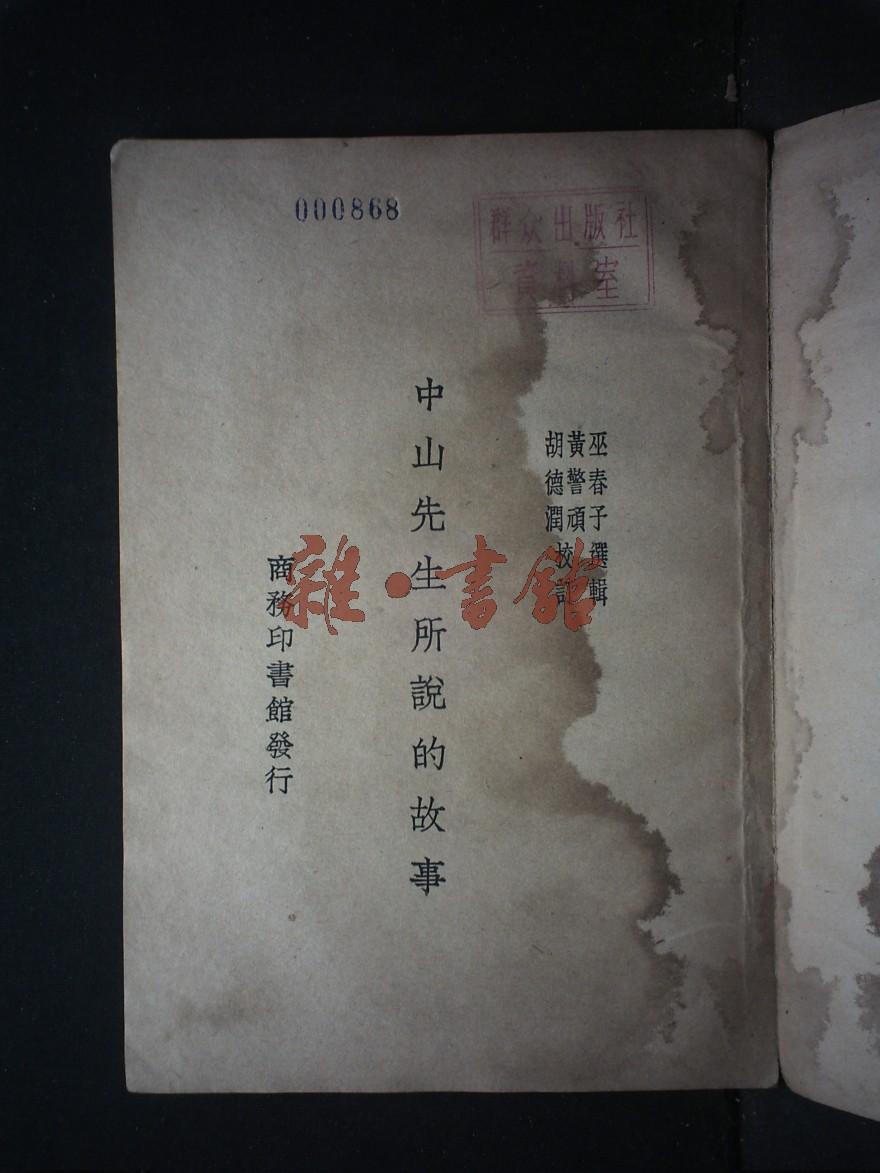 000868
群众出版社
資料室
巫春子選輯
黃警頑
胡德潤校訂
中山先生所說的故事
商務印書館發行
雜·書館